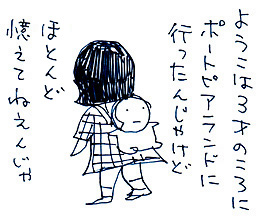 ようこは3才のころに
ポートピアランドに
行ったんじゃけど
ほとんど
憶えてねえんじゃ